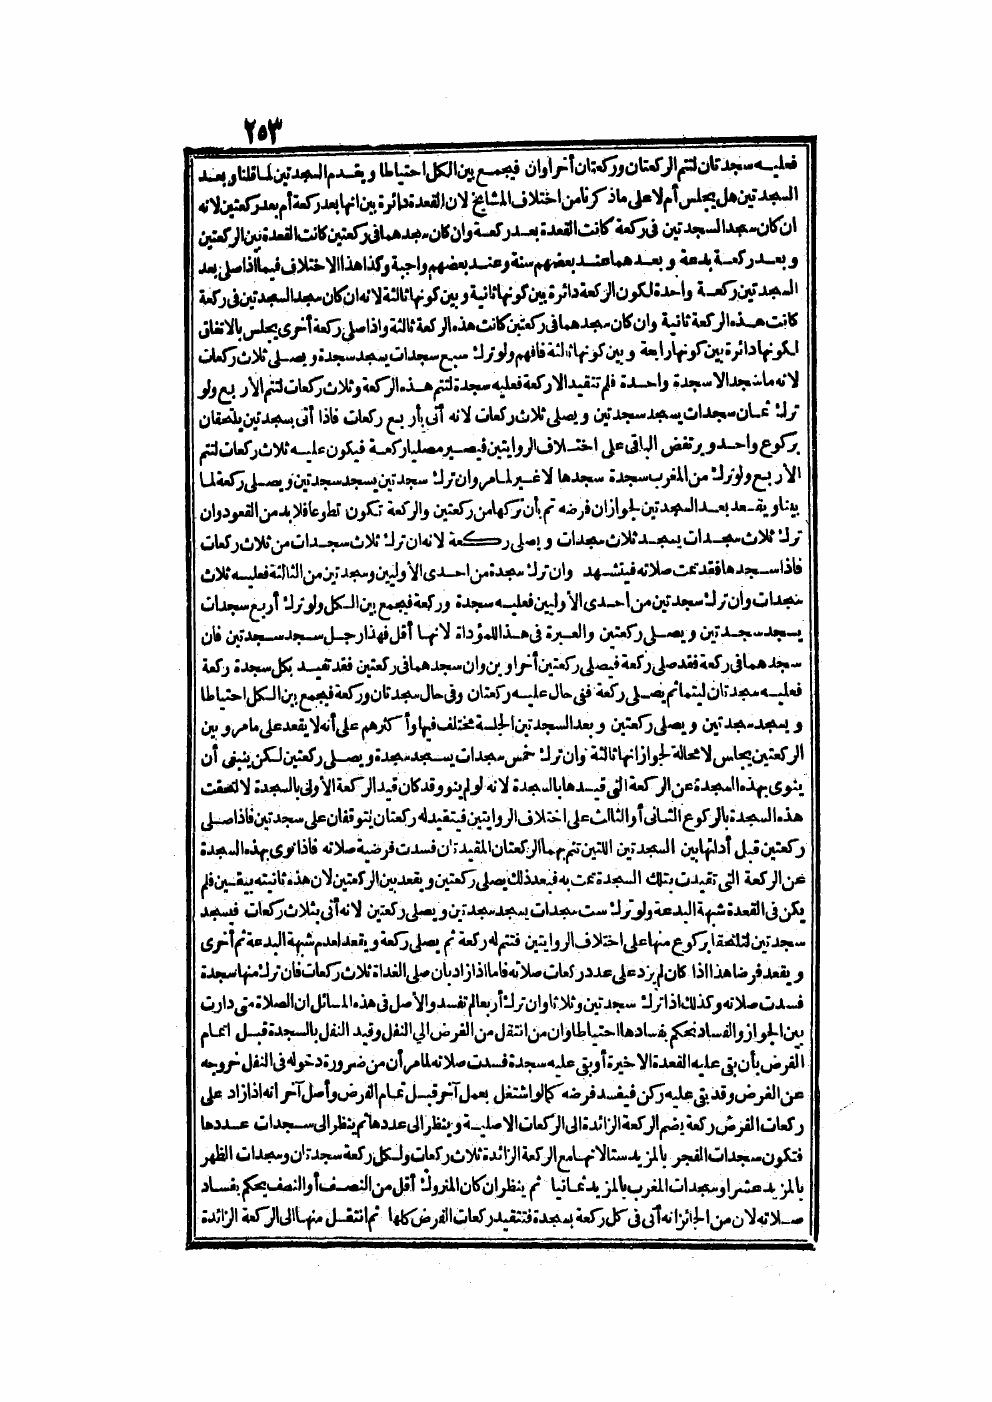 ٢٥٣
فعليه سجدتان لتتم الركعتان وركعتان أخراوان فيجمع بين الكل احتياطا ويقدم السجدتين لما قلنا وبعد
السجدتين هل يجلس أم لا على ما ذكرنا من اختلاف المشايخ لان القعدة دائرة بين انها بعد ركعة أم بعد ركعتين لانه
ان كان سجد السجدتين فى ركعة كانت القعدة بعد ركعة وان كان سجدهما فى ركعتين كانت القعدة بين الركعتين
وبعد ركعة بدعة وبعدهما عند بعضهم سنة وعند بعضهم واجبة وكذا هذا الاختلاف فيما اذا صلى بعد
السجدتين ركعة واحدة لكون الركعة دائرة بين كونها ثانية وبين كونها ثالثة لانه ان كان سجد السجدتين فى ركعة
كانت هذه الركعة ثانية وان كان سجدهما فى ركعتين كانت هذه الركعة ثالثة واذا صلى ركعة أخرى يجلس بالاتفاق
لكونها دائرة بين كونها رابعة وبين كونها ثالثة فافهم ولو ترك سبع سجدات يسجد سجدة ويصلى ثلاث ركعات
لانه ما سجد الا سجدة واحدة فلم تتقيد الا ركعة فعليه سجدة لتتم هذه الركعة وثلاث ركعات لتتم الأربع ولو
ترك ثمان سجدات يسجد سجدتين ويصلى ثلاث ركعات لانه أتى بأربع ركعات فاذا أتى بسجدتين يلتحقان
بركوع واحد ويرتفض الباقى على اختلاف الروايتين فيصير مصليا ركعة فيكون عليه ثلاث ركعات لتتم
الأربع ولو ترك من المغرب سجدة سجدها لا غير لما مر وان ترك سجدتين يسجد سجدتين ويصلى ركعة لما
بينا ويقعد بعد السجدتين لجواز ان فرضه تم بأن تركها من ركعتين والركعة تكون تطوعا فلا بد من القعود وان
ترك ثلاث سجدات يسجد ثلاث سجدات ويصلى ركعة لانه ان ترك ثلاث سجدات من ثلاث ركعات
فاذا سجدها فقد تمت صلاته فيتشهد وان ترك سجدة من احدى الأوليين وسجدتين من الثالثة فعليه ثلاث
سجدات وان ترك سجدتين من احدى الأوليين فعليه سجدة وركعة فيجمع بين الكل ولو ترك أربع سجدات
يسجد سجدتين ويصلى ركعتين والعبرة فى هذا للمؤداة لانها أقل فهذا رجل سجد سجدتين فان
سجدهما فى ركعة فقد صلى ركعة فيصلى ركعتين أخراوين وان سجدهما فى ركعتين فقد تقيد بكل سجدة ركعة
فعليه سجدتان ليتما ثم يصلى ركعة ففى حال عليه ركعتان وفى حال سجدتان وركعة فيجمع بين الكل احتياطا
ويسجد سجدتين ويصلى ركعتين وبعد السجدتين الجلسة مختلف فيها وأكثرهم على أنه لا يقعد على ما مر وبين
الركعتين يجلس لا محالة لجواز انها ثالثة وان ترك خمس سجدات يسجد سجدة ويصلى ركعتين لكن ينبغى أن
ينوى بهذه السجدة عن الركعة التى قيدها بالسجدة لانه لو لم ينو وقد كان قيد الركعة الأولى بالسجدة لالتحقت
هذه السجدة بالركوع الثانى أو الثالث على اختلاف الروايتين فيتقيد له ركعتان يتوقفان على سجدتين فاذا صلى
ركعتين قبل أدائها بين السجدتين اللتين تتم بهما الركعتان المقيدتان فسدت فرضية صلاته فاذا نوى بهذه السجدة
عن الركعة التى تقيدت بتلك السجدة تمت به فبعد ذلك يصلى ركعتين ويقعد بين الركعتين لان هذه ثانيته بيقين فلم
يكن فى القعدة شبهة البدعة ولو ترك ست سجدات يسجد سجدتين ويصلى ركعتين لانه أتى بثلاث ركعات فيسجد
سجدتين لتلتحقا بركوع منها على اختلاف الروايتين فتتم له ركعة ثم يصلى ركعة ويقعد لعدم شبهة البدعة ثم أخرى
ويقعد فرضا هذا اذا كان لم يزد على عدد ركعات صلاته فاما اذا زاد بان صلى الغداة ثلاث ركعات فان ترك منها سجدة
فسدت صلاته وكذلك اذا ترك سجدتين وثلاثا وان ترك أربعا لم تفسد والأصل فى هذه المسائل ان الصلاة متى دارت
بين الجواز والفساد نحكم بفسادها احتياطا وان من انتقل من الفرض الى النفل وقيد النفل بالسجدة قبل اتمام
الفرض بأن بقى عليه القعدة الاخيرة أو بقى عليه سجدة فسدت صلاته لما مر أن من ضرورة دخوله فى النفل خروجه
عن الفرض وقد بقى عليه ركن فيفسد فرضه كما لو اشتغل بعمل آخر قبل تمام الفرض وأصل آخر انه اذا زاد على
ركعات الفرض ركعة يضم الركعة الزائدة الى الركعات الاصلية وينظر الى عددها ثم ينظر الى سجدات عددها
فتكون سجدات الفجر بالمزيد ستا لانها مع الركعة الزائدة ثلاث ركعات ولكل ركعة سجدتان وسجدات الظهر
بالمزيد عشرا وسجدات المغرب بالمزيد ثمانيا ثم ينظر ان كان المتروك أقل من النصف أو النصف يحكم بفساد
صلاته لان من الجائز انه أتى فى كل ركعة بسجدة فتتقيد ركعات الفرض كلها ثم انتقل منها الى الركعة الزائدة